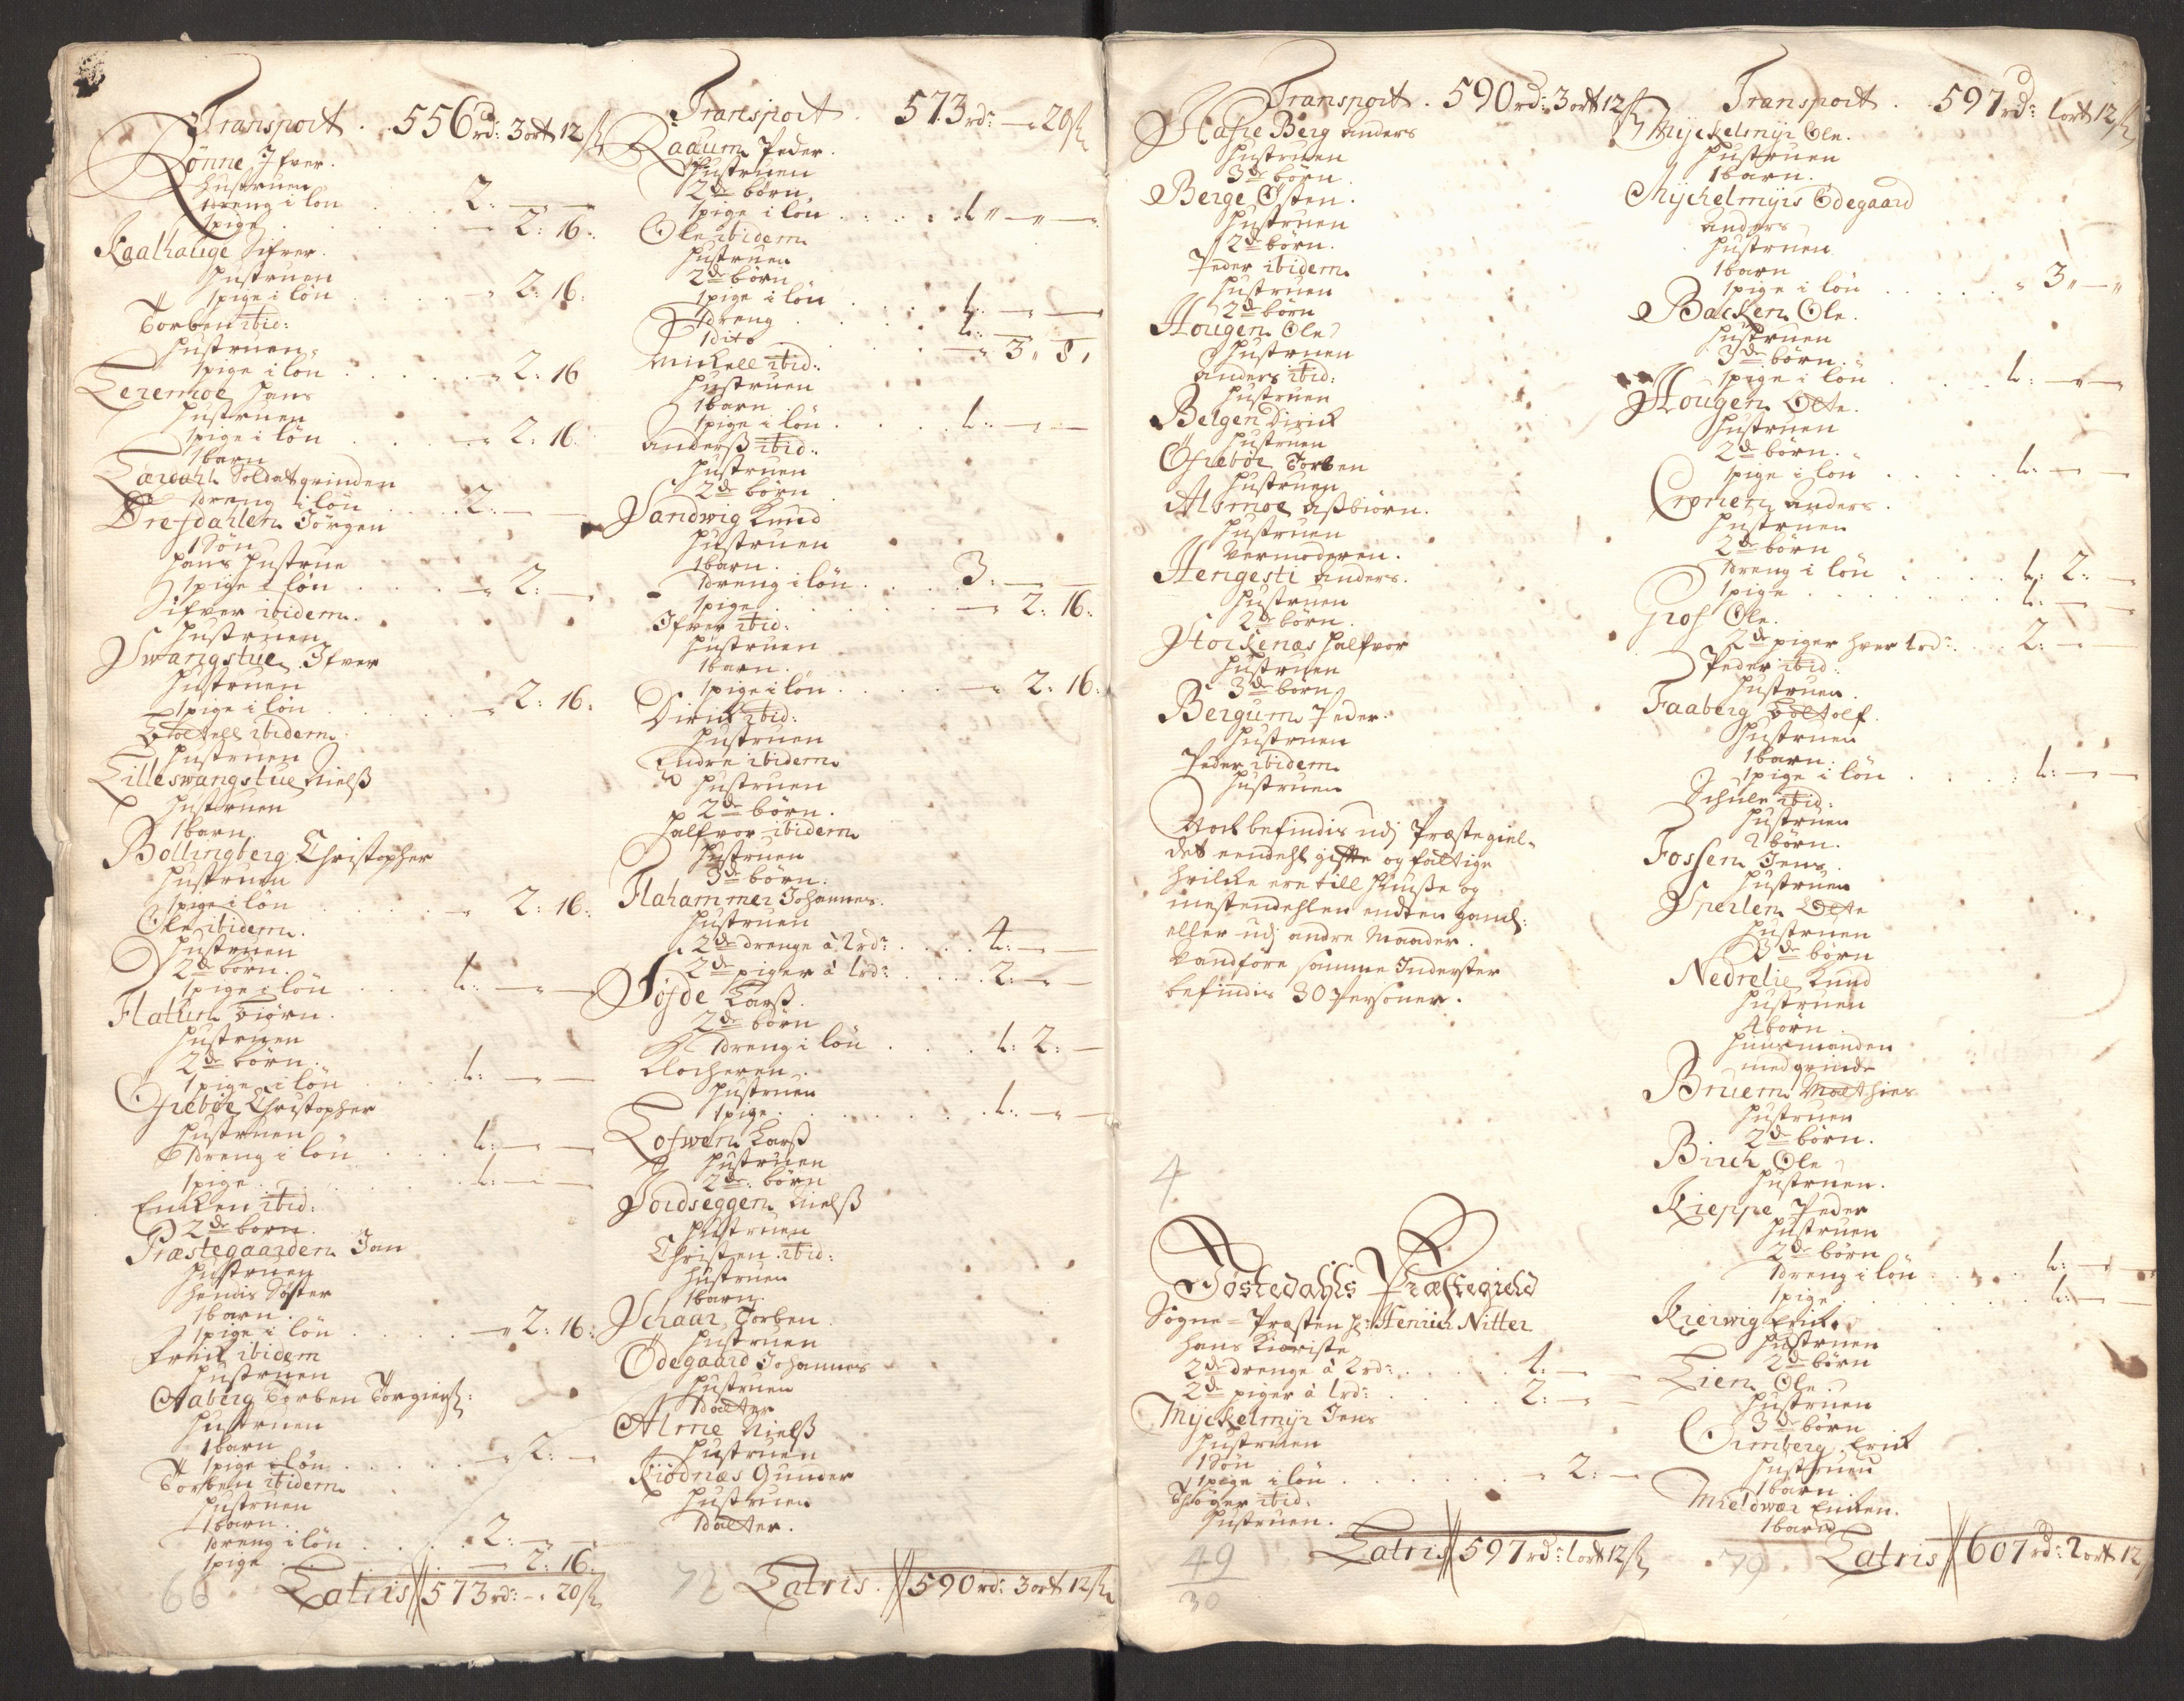 Transport . . 556 rd: 3 ort 12 ß
Rønne Ifver.
Hustruen
1 dreng i løn . . . 2: — —
1 pige . . . — 2: 16:
Kaalhauge Sifver.
Hustruen
1 pige i løn . . . — 2: 16.
Torben ibid:
Hustruen
1 pige i løn . . . — 2: 16
Leremoe Hans
Hustruen
1 pige i løn . . . — 2: 16.
1 barn
Lærdahl Soldatqvinden
1 dreng i løn . . . 2: — —
Drefdahlen Jørgen
1 Søn
Hans Hustrue
1 pige i løn . . . — 2: —
Sifver ibidem.
Hustruen
Swangstue Ifver
Hustruen
1 pige i løn . . . — 2: 16.
ibidem
Hustruen
Lilleswangstue Nielß
Hustruen
1 barn
Bollingberg Christopher
Hustruen
1 pige i løn . . . — 2: 16.
Ole ibidem.
Hustruen
2de børn.
1 pige i løn . . . 1: — —
Flathen Biørn.
Hustruen
2de børn.
1 pige i løn . . . 1: — —
Ofrebøe Christopher
Hustruen
1 dreng i løn . . . 1: — —
1 pige . . . 1: — —
Encken ibid:
2de børn.
Præstegaarden Jon
Hustruen
Hendis Søster
1 barn.
1 pige i løn . . . — 2: 16:
Erick ibidem
Hustruen
Aaberg Torben Torgierß:
Hustruen
1 barn
1 pige i løn . . . — 2: —
Torben ibidem
Hustruen
1 barn.
1 dreng i løn . . . 2: — —
1 pige . . . — 2: 16.
66 Latris 573 rd: — 20 ß
Transport . 573 rd: — 20 ß
Raaum Peder.
Hustruen
2de børn.
1 pige i løn . . . 1 " — " —
Ole ibidem
Hustruen
2de børn
1 pige i løn . . . 1: — —
1 dreng . . . 1: — —
1 dito . . . — 3 " 8 "
Mickell ibid:
Hustruen
1 barn
1 pige i løn . . . 1: — —
Anderß ibid:
Hustruen
2de børn
Sandwig Knud
Hustruen
1 barn.
1 dreng i løn . . 3: — —
1 pige . . . — 2: 16:
Ifver ibid:
Hustruen
1 barn.
1 pige i løn . . . — 2: 16:
Dirick ibid:
Hustruen
Endre ibidem
Hustruen
2de børn.
Halfvor ibidem
Hustruen
3de børn:
Flahammer Johannes.
Hustruen
2de drenge à 2 rd: . . . 4: — —
2de piger à 1 rd: . . . 2: — —
Søfde Larß.
2de børn
1 dreng i løn . . . 1: 2: —
Klocheren.
Hustruen
1 pige . . . 1: — —
Lofwen Larß
Hustruen
2de: børn
Jordseggen Nielß
Hustruen
Christen ibid:
Hustruen
1 barn.
Schaar Torben
Hustruen
Ødegaard Johannes
Hustruen
1 datter
Alme Nielß
Hustruen
Kiødnæs Gunder
Hustruen
1 datter.
72 Latris . 590 rd: 3 ort 12 ß
Transport . 590 rd: 3 ort 12 ß
Hafre Berg Anders
Hustruen
3de børn.
Berge Østen.
Hustruen
2de børn.
Peder ibidem
Hustruen
2de børn
Hougen Ole
Hustruen
Anders ibid:
Hustruen
Belgen Dirick
Hustruen
Ofrebøe Torben
Hustruen
Alsmoe Aßbiørn.
Hustruen
Vermoderen.
Hengesti Anders.
Hustruen
2de børn.
Stockenæs Halfvor
Hustruen
3de børn
Bergum Peder.
Hustruen
Peder ibidem
Hustruen
Noch befindis udj Præstegiel-
det eendehl gifte og fattige
hvilke ere till Huuße og
mestendehlen endten gaml:
eller udj andre Maader.
Vandføre samme Inderster
befindis 30 Personer.
4
Jøstedahls Præstegield
Sogne-Præsten Hr: Henrich Nitter
Hans Kiæriste
2de drenge à 2 rd: . . . 4: —
2de piger à 1 rd: . . . 2: — —
Myckelmyr Jens
Hustruen
1 Søn
1 pige i løn . . . — 2: —
Thøger ibid:
Hustruen.
Latris 597 rd: 1 ort 12 ß
49
30
Transport . . 597 rd: 1 ort 12 ß
Myckelmyr Ole.
Hustruen
1 barn.
Mychelmyrs Ødegaard
Anders
Hustruen
1 barn
1 pige i løn . . . " 3 " — "
Backen Ole.
Hustruen
3de børn.
1 pige i løn . . . 1: — —
Hougen Otte.
Hustruen
2de børn.
1 pige i løn . . . 1: — —
Cronen Anders.
Hustruen
2de børn
1 dreng i løn . . . 1: 2: —
1 pige . . . 1: — —
Grof Ole.
2de piger hver 1 rd: . . 2: —
Peder ibid:
Hustruen.
Faaberg
Hustruen
1 barn.
1 pige i løn . . . 1: — —
Schule ibid:
Hustruen
2 børn.
Fossen Jens
Hustruen
Sperlen Otte
Hustruen
3de børn
Nedrelie Knud
Hustruen
4 børn
Huusmanden
med qvinde
Bruem Mathies
Hustruen
2de børn.
Birch Ole
Hustruen.
Kieppe Peder
Hustruen
2de børn
1 dreng i løn . . . 1: — —
1 pige . . . 1: —
Kierwig Erick
Hustruen
2de børn
Lien Ole.
Hustruen
3de børn
Ormberg Erick
Hustruen
1 barn.
Mieldwær Encken.
1 barn
79 Latris 607 rd: 2 ort 12